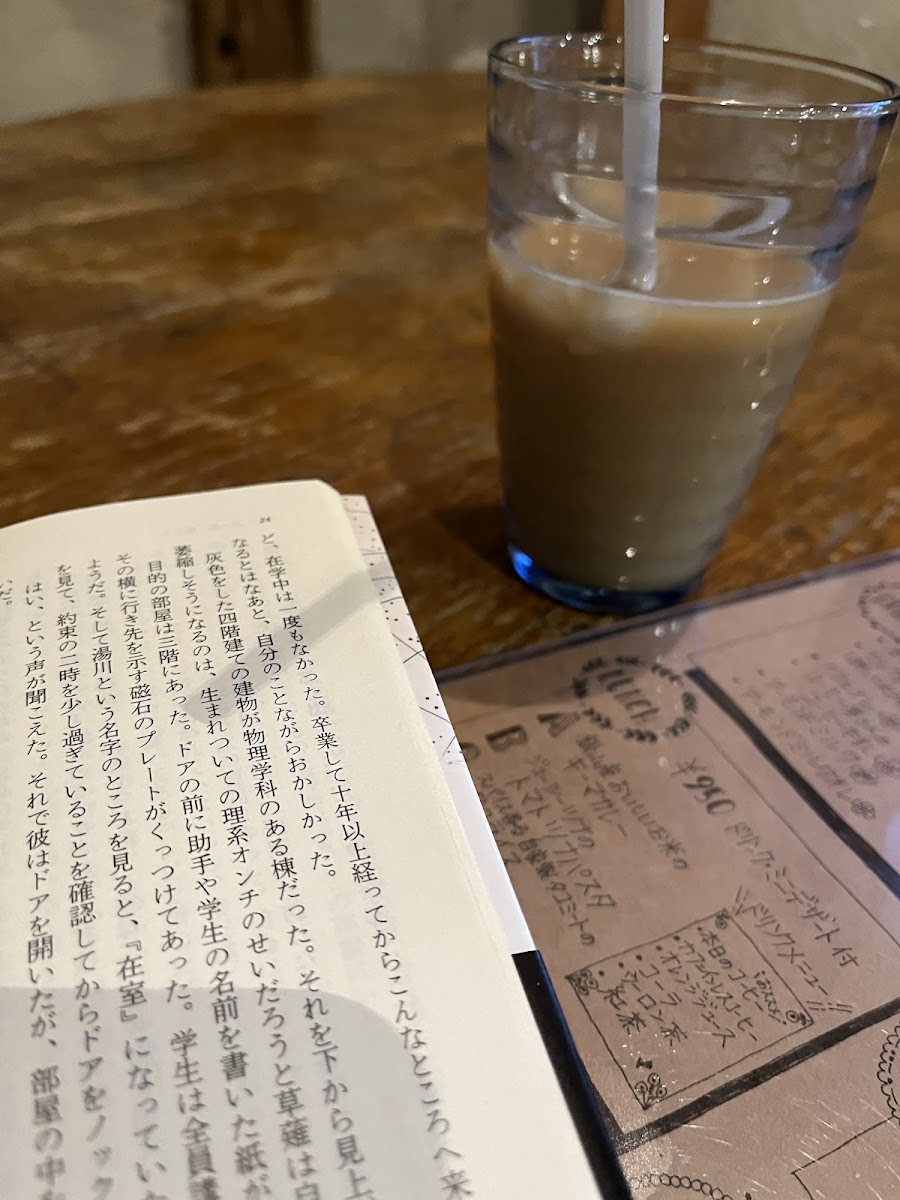 24
ど、在学中は一度もなかった。卒業して十年以上経ってからこんなところへ来
なるとはなあと、自分のことながらおかしかった。
灰色をした四階建ての建物が物理学科のある棟だった。それを下から見上
萎縮しそうになるのは、生まれついての理系オンチのせいだろうと草薙は自
目的の部屋は三階にあった。ドアの前に助手や学生の名前を書いた紙が
その横に行き先を示す磁石のプレートがくっつけてあった。学生は全員講
ようだ。そして湯川という名字のところを見ると、『在室』になってい
を見て、約束の二時を少し過ぎていることを確認してからドアをノック
はい、という声が聞こえた。それで彼はドアを開いたが、部屋の中を
いだ。
LUNCH
¥950 ドリンク・ミニデザート付
A
おいしいお米の
キーマカレー
B
トマトツナパスタ
自家製タコミートの
ドリンクメニュー
・本日のコーヒー
・カフェインレスコーヒー
・オレンジジュース
・コーラ
・ウーロン茶
・紅茶